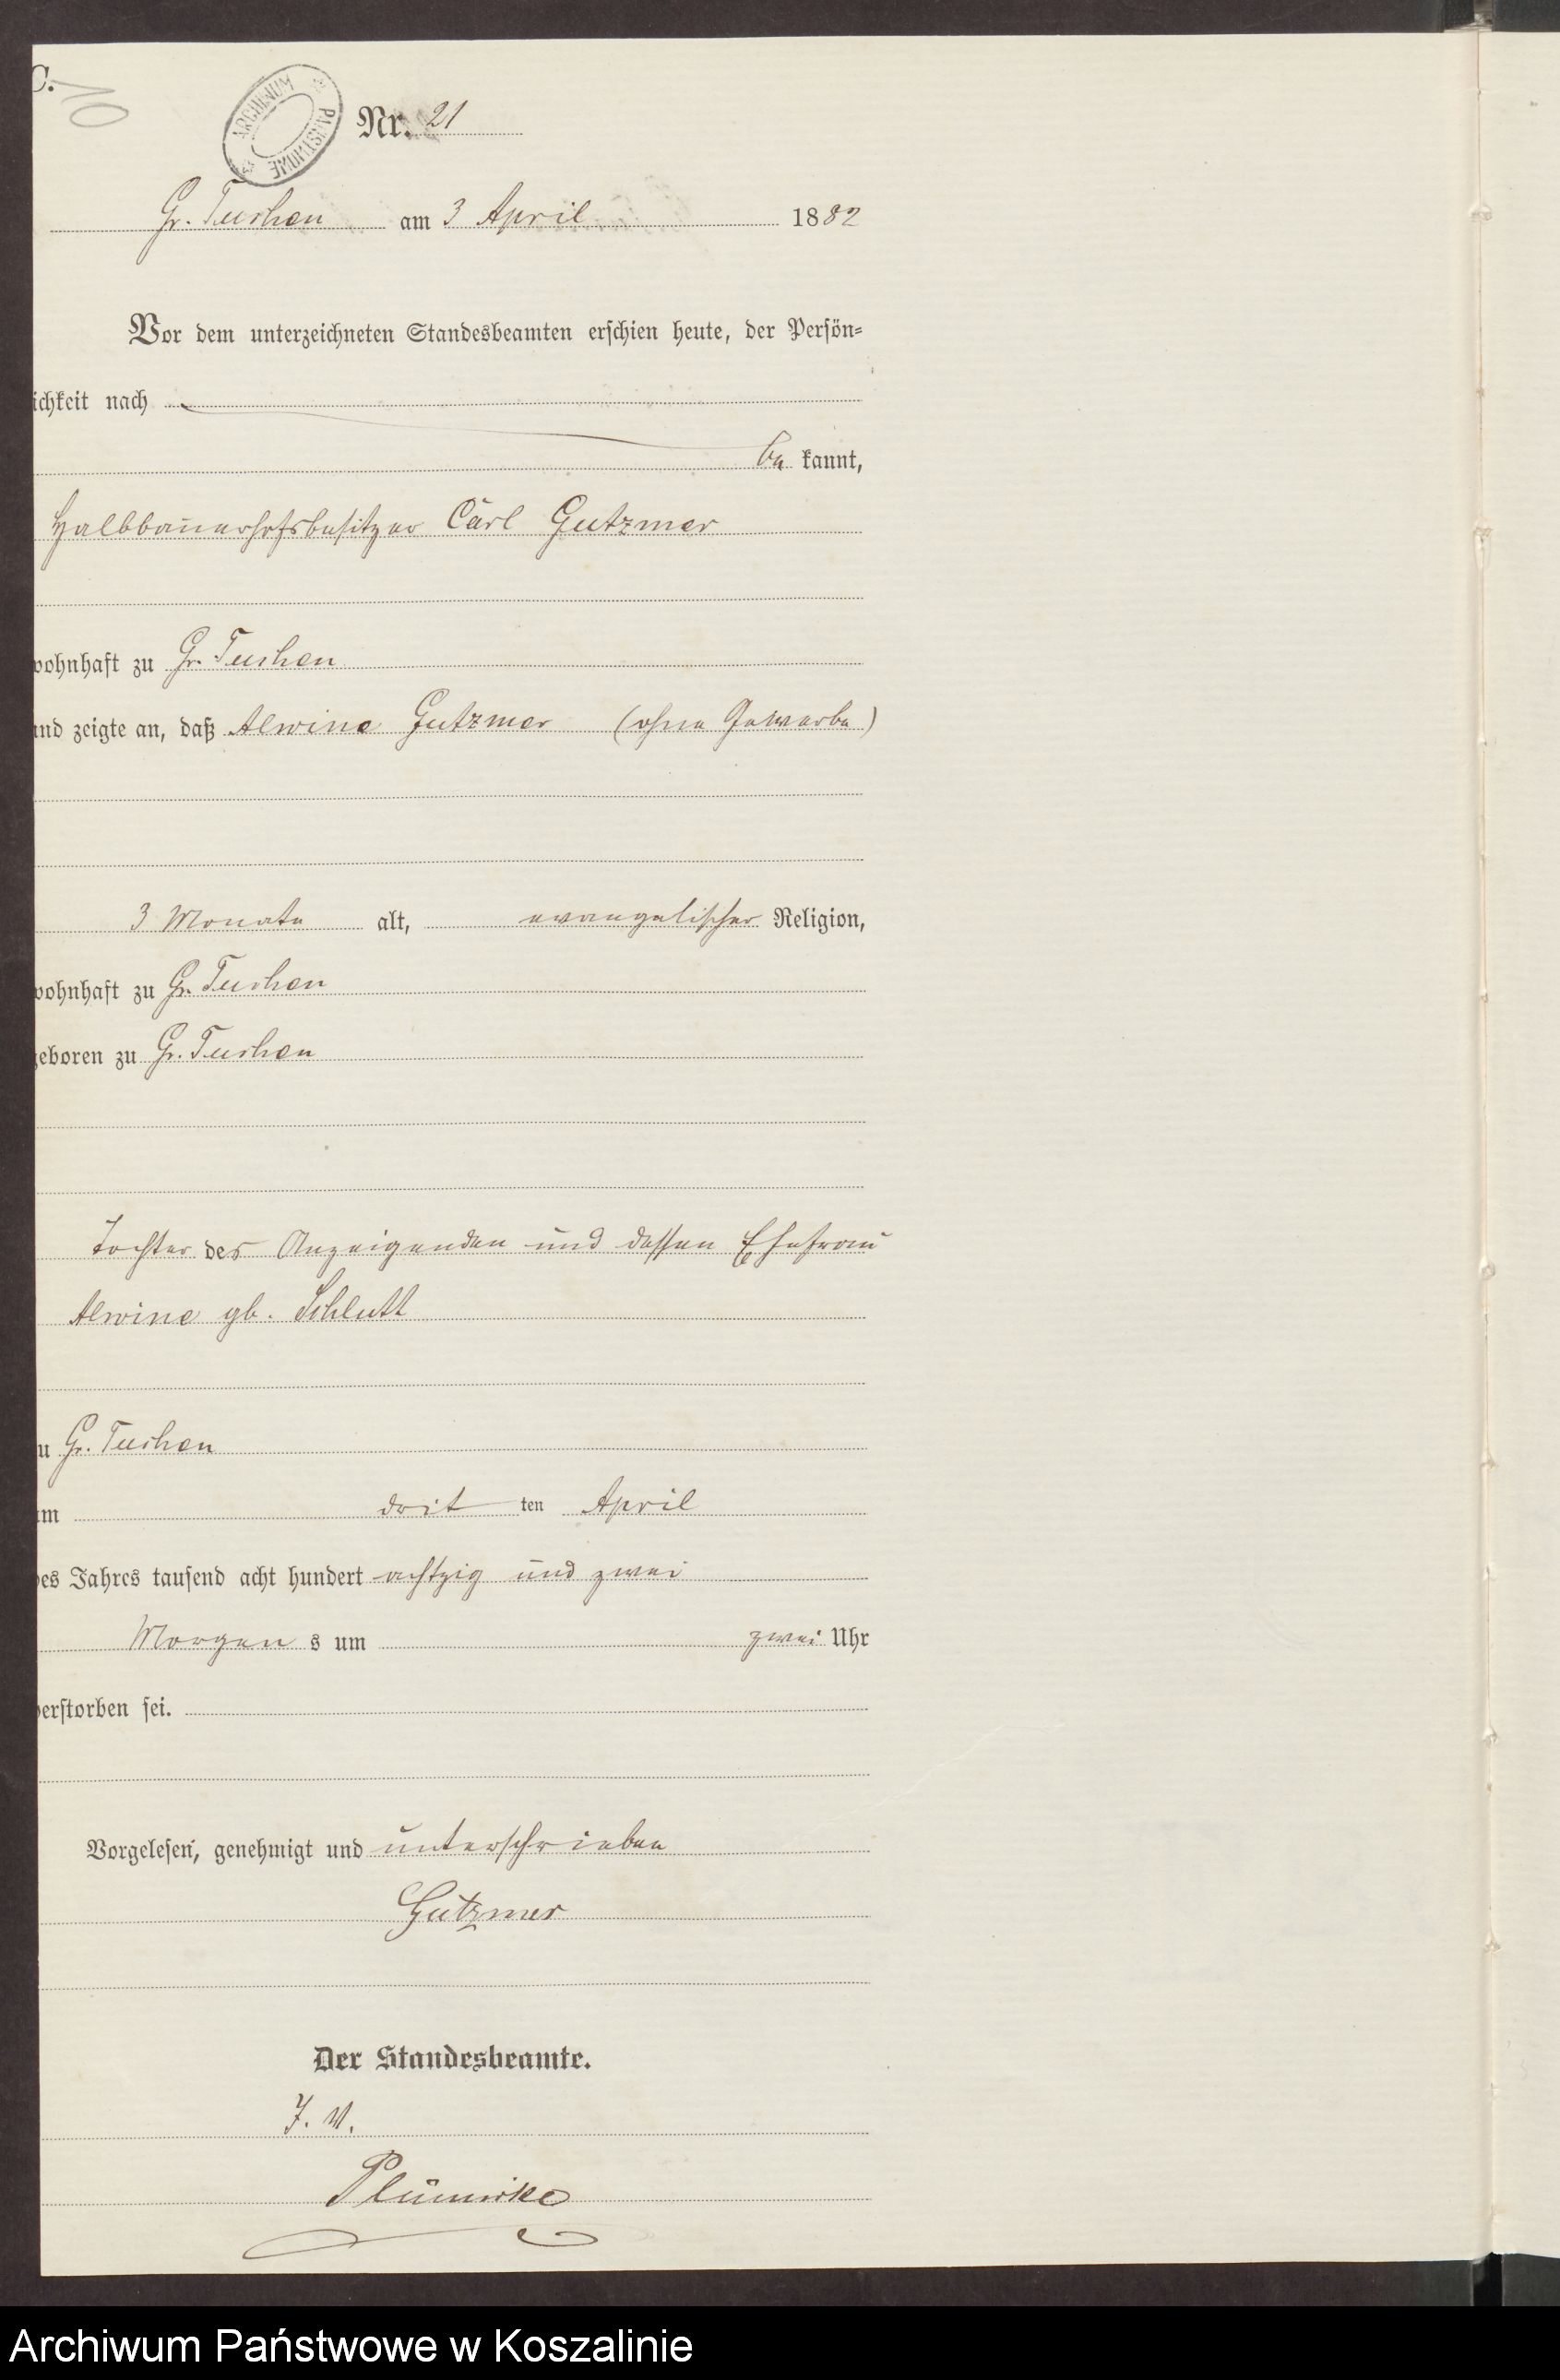 C.
10
ARCHIWUM PAŃSTWOWE
Nr. 21
Gr. Tuchen am 3 April 1882
Vor dem unterzeichneten Standesbeamten erschien heute, der Persön=
ichkeit nach
be kannt,
Halbbauerhofsbesitzer Carl Gutzmer
wohnhaft zu Gr. Tuchen
und zeigte an, daß Alwine Gutzmer (ohne Gewerbe)
3 Monate alt, evangelischer Religion,
wohnhaft zu Gr. Tuchen
geboren zu Gr. Tuchen
Tochter des Anzeigenden und dessen Ehefrau
Alwine gb. Schlutt
u Gr. Tuchen
am dritten April
des Jahres tausend acht hundert achtzig und zwei
Morgens um zwei Uhr
verstorben sei.
Vorgelesen, genehmigt und unterschrieben
Gutzmer
Der Standesbeamte.
I. V.
Archiwum Państwowe w Koszalinie